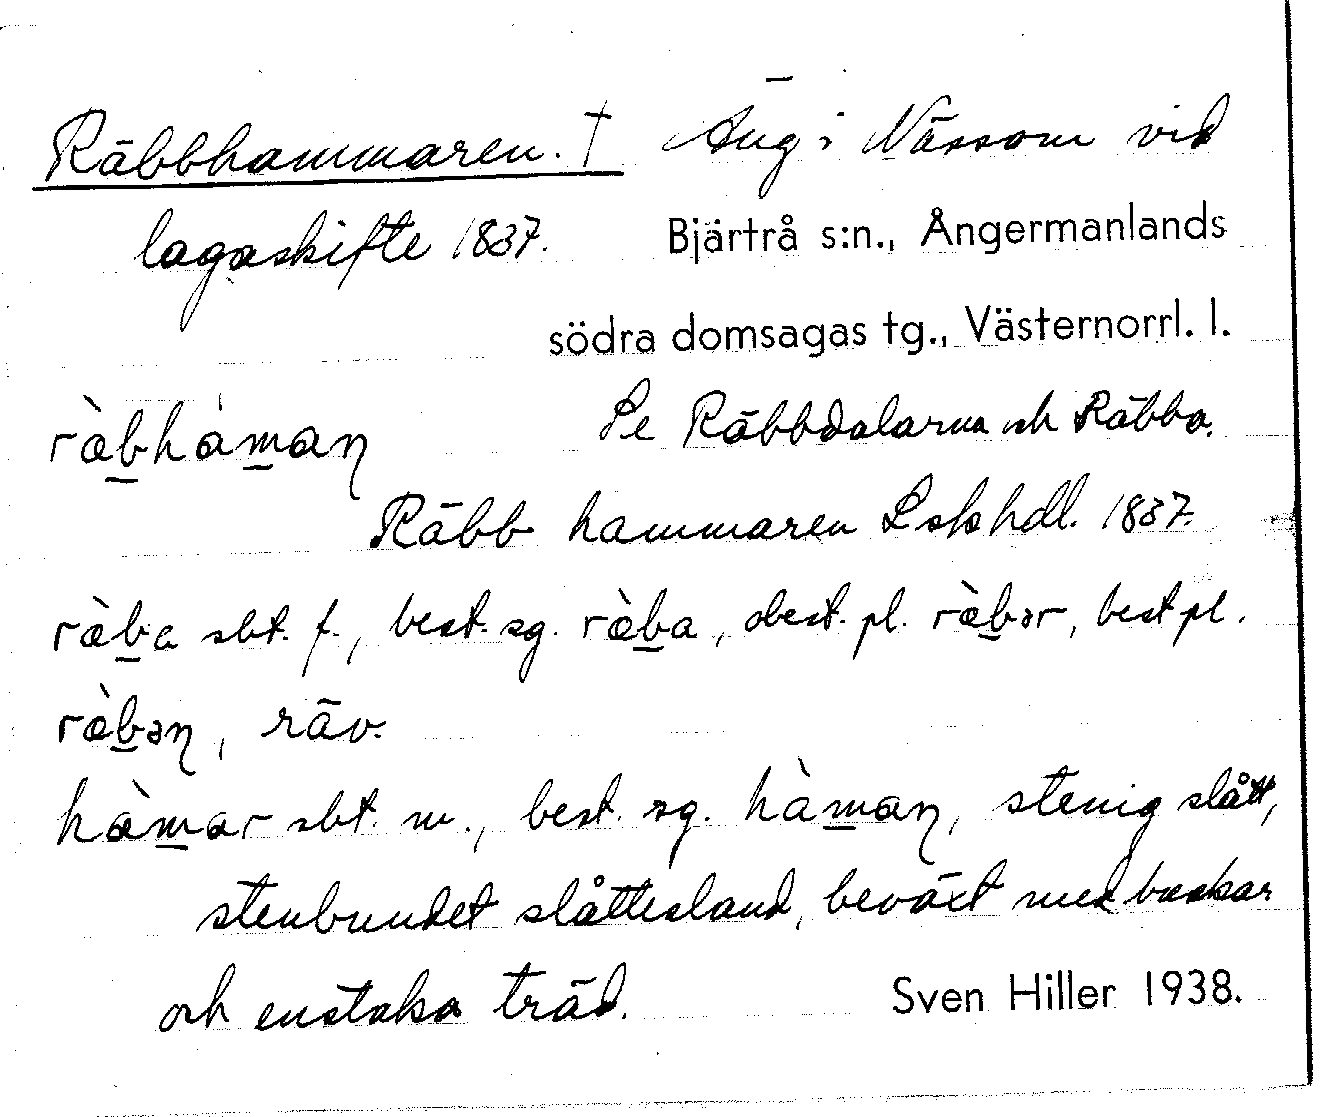 Räbbhammaren. † Äng i Nässom vid
lagaskifte 1837. Bjärtrå s:n., Ångermanlands
södra domsagas tg., Västernorrl. l.
ràbhàman Se Räbbdalarna och Räbba.
Räbb hammaren Lskhdl. 1837.
ræ̀ba sbt. f., best. sg. ræ̀ba, obest. pl. ræ̀bər, best pl.
ræ̀bəɳ, räv.
hàmar sbt. m., best. sg. hàmaɳ, stenig slått,
stenbundet slåttesland, beväxt med buskar
och enstaka träd. Sven Hiller 1938.